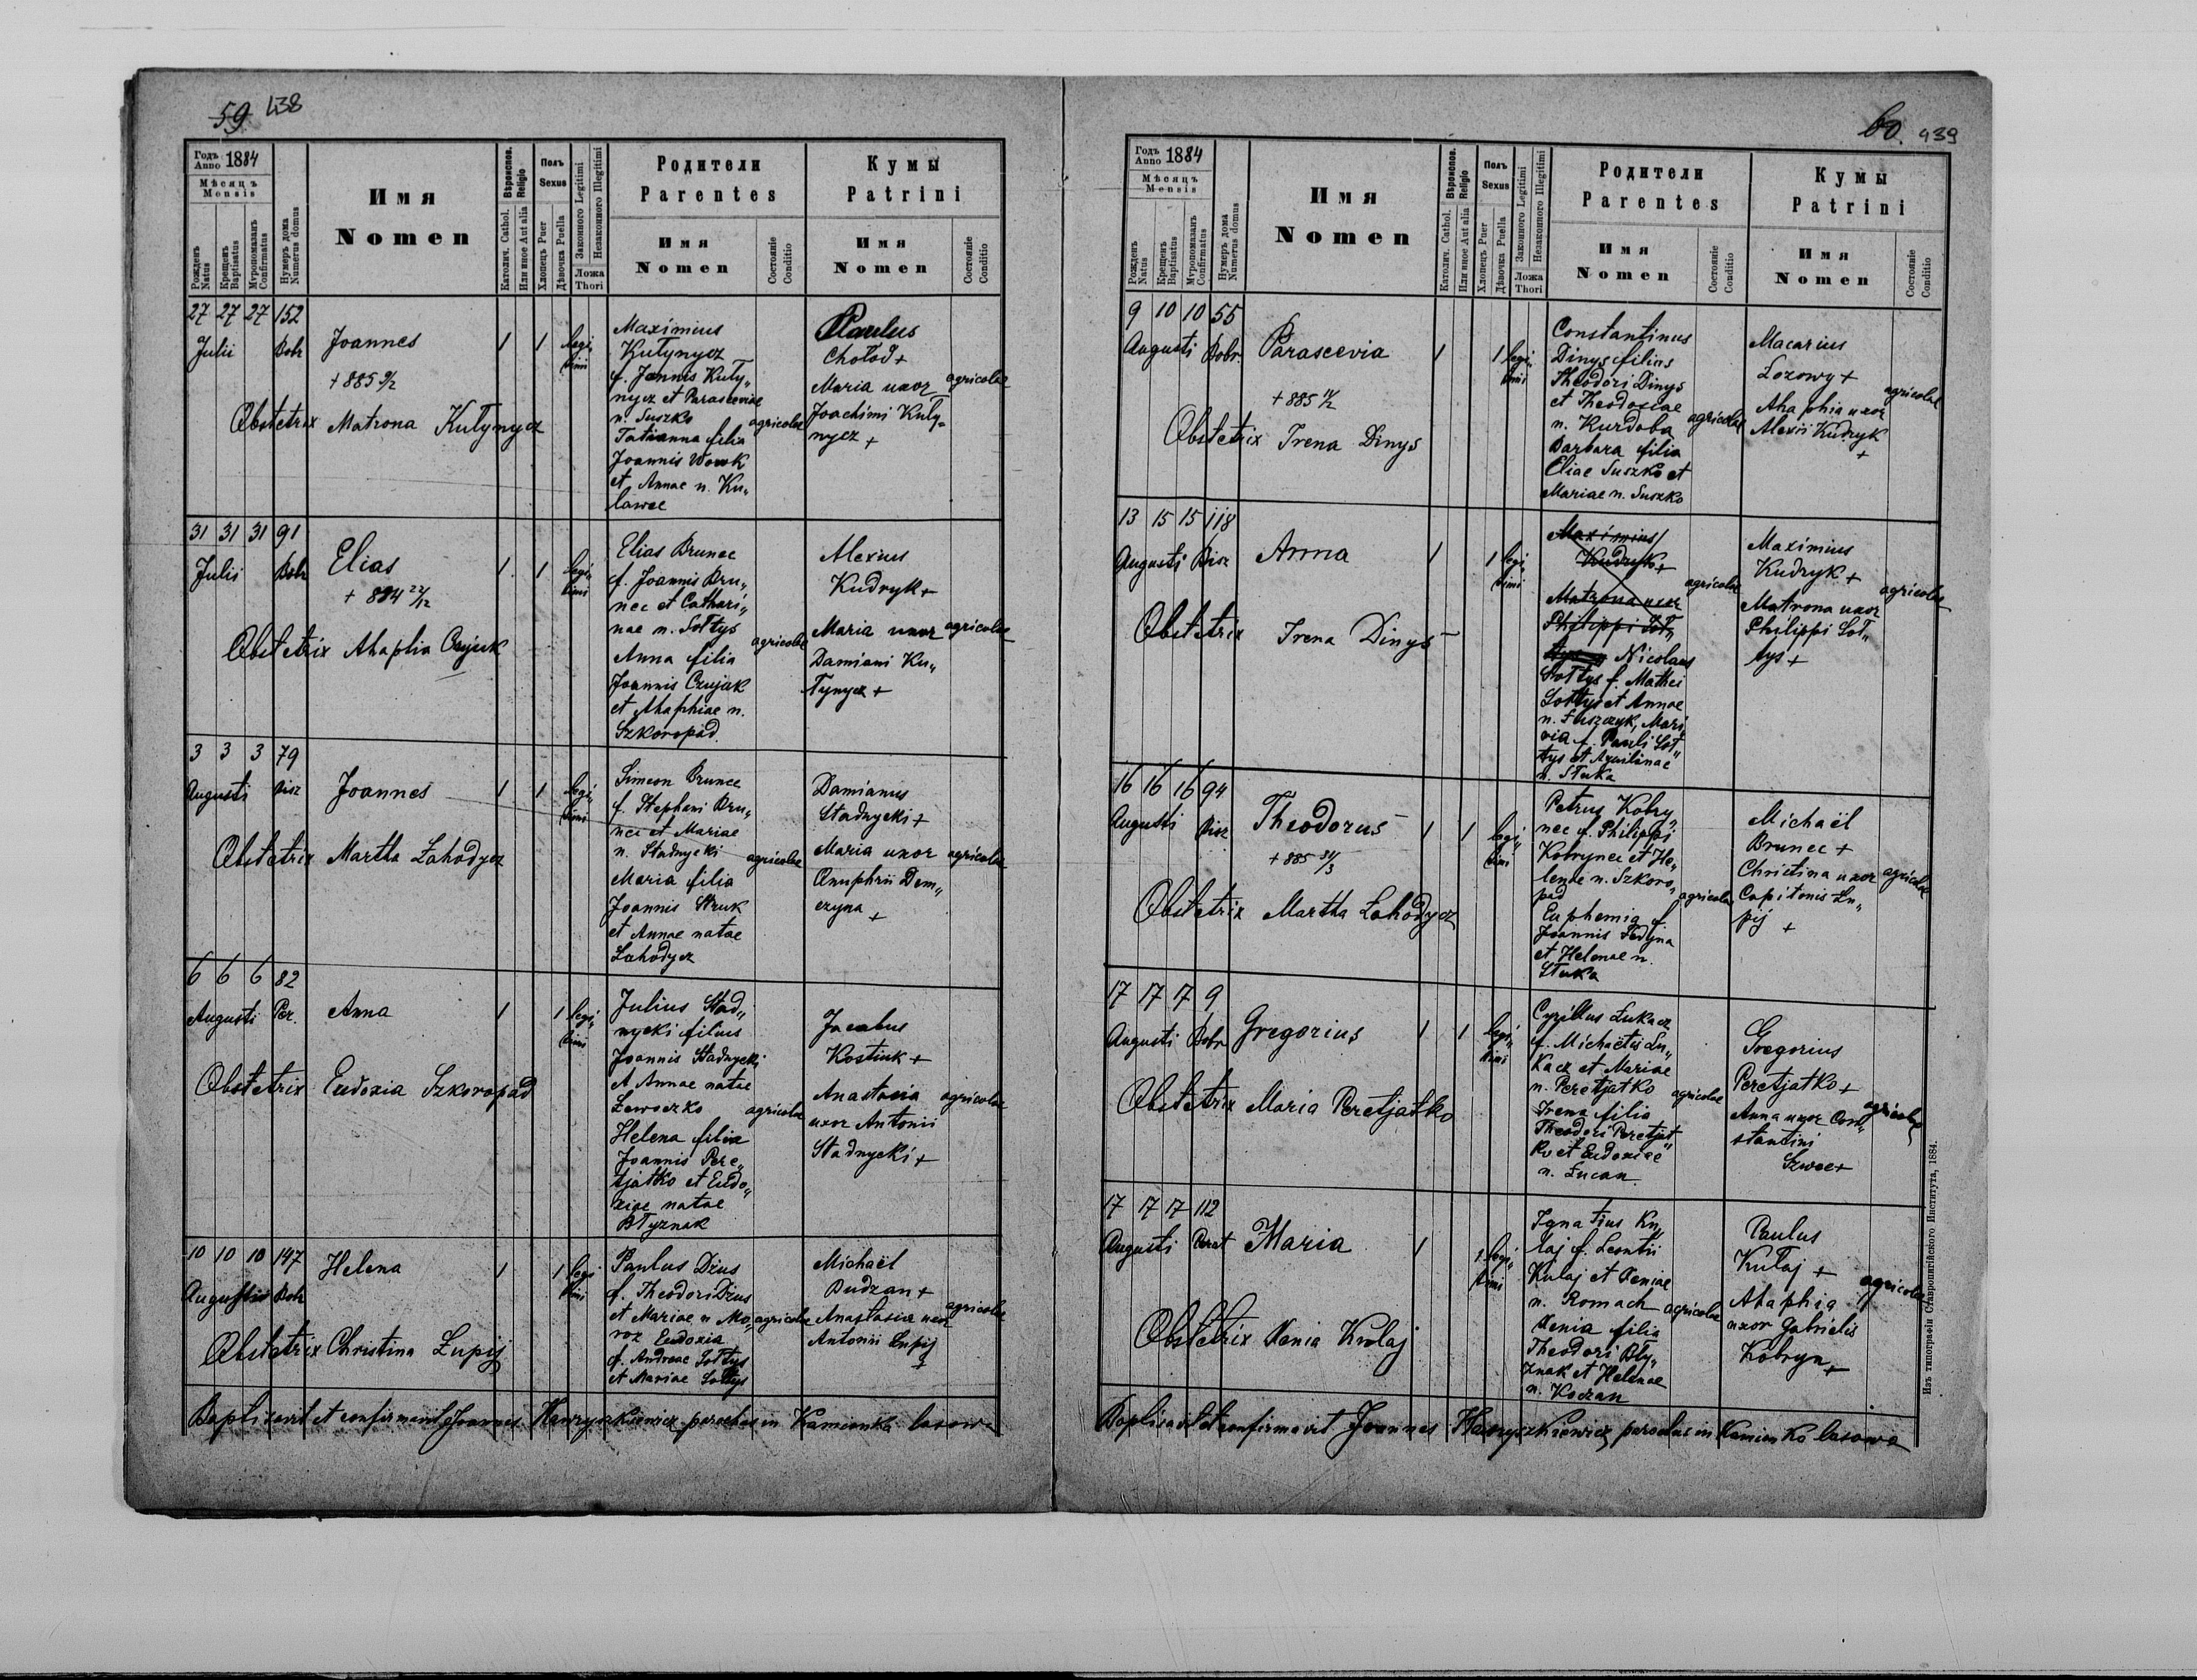 59 438
Годъ Anno 1884
Мѣсяцъ Mensis
Рожденъ Natus
Крещенъ Baptisatus
Мѵропомазанъ Confirmatus
Нумеръ дома Numerus domus
Имя
Nomen
Вѣроиспов. Religio
Католич. Cathol.
Или иное Aut alia
Полъ Sexus
Хлопецъ Puer
Дѣвочка Puella
Законного Legitimi
Незаконного Illegitimi
Ложа Thori
Родители
Parentes
Имя
Nomen
Состояніе Conditio
Кумы
Patrini
Имя
Nomen
Состояніе Conditio
27 27 27 152
Julii Bobr
Joannes
+ 885 9/2
1 1 legi„
timi
Obstetrix Matrona Kułynycz
Maximius
Kułynycz
f. Joannis Kuły„
nycz et Parasceviae
n. Suszko
Tatianna filia
Joannis Wowk
et Annae n. Ku„
lawec
agricolae
Paulus
Chołod +
Maria uxor
Joachimi Kuły„
nycz +
agricolae
31 31 31 91
Julii Bobr
Elias
+ 884 22/12
1 1 legi„
timi
Obstetrix Ahaphia Czujak
Elias Brunec
f. Joannis Bru„
nec et Cathari„
nae n. Sołtys
Anna filia
Joannis Czujak
et Ahaphiae n.
Szkoropad.
agricolae
Alexius
Kudryk +
Maria uxor
Damiani Ku„
łynycz +
agricolae
3 3 3 79
Augusti Bisz
Joannes
1 1 legi„
timi
Obstetrix Martha Łahodycz
Simeon Brunec
f. Stephani Bru„
nec et Mariae
n. Stadnycki
Maria filia
Joannis Struk
et Annae natae
Łahodycz
agricolae
Damianus
Stadnycki +
Maria uxor
Onuphrii Dem„
czyna +
agricolae
6 6 6 82
Augusti Per.
Anna
1 1 legi„
timi
Obstetrix Eudoxia Szkoropad
Julius Stad„
nycki filius
Joannis Stadnycki
et Annae natae
Lewoczko
Helena filia
Joannis Pere„
tjatko et Eudo„
xiae natae
Błyznak
agricolae
Jacobus
Kostiuk +
Anastasia
uxor Antonii
Stadnycki +
agricolae
10 10 10 147
Augusti Bobr
Helena
1 1 legi
timi
Obstetrix Christina Łupij
Paulus Dzus
f. Theodori Dzus
et Mariae n Mo„
roz Eudoxia
f. Andreae Sołtys
et Mariae Sołtys
agricolae
Michaël
Dudzan +
Anastasia uxor
Antonii Łupij
+
agricolae
Baptisavit et confirmavit Joannes Hawryszkiewicz parochus in Kamionka lasowa
60. 439
Годъ Anno 1884
Мѣсяцъ Mensis
Рожденъ Natus
Крещенъ Baptisatus
Мѵропомазанъ Confirmatus
Нумеръ дома Numerus domus
Имя
Nomen
Вѣроиспов. Religio
Католич. Cathol.
Или иное Aut alia
Полъ Sexus
Хлопецъ Puer
Дѣвочка Puella
Законного Legitimi
Незаконного Illegitimi
Ложа Thori
Родители
Parentes
Имя
Nomen
Состояніе Conditio
Кумы
Patrini
Имя
Nomen
Состояніе Conditio
9 10 10 55
Augusti Bobr.
Parascevia
+ 885 11/2
1 1 legi„
timi
Obstetrix Irena Dinys
Constantinus
Dinys filius
Theodori Dinys
et Theodosiae
n. Kurdoba
Barbara filia
Eliae Suszko et
Mariae n. Suszko
agricolae
Macarius
Lozowy +
Ahaphia uxor
Alexii Kudryk
+
agricolae
13 15 15 118
Augusti Bisz
Anna
1 1 legi„
timi
Obstetrix Irena Dinys
Maximius
Kudryk +
Matrona uxor
Philippi Soł„
tys Nicolaus
Sołtys f. Mathei
Sołtys et Annae
n. Huszczyk, Mari„
f. Pauli Soł„
tys et Aquilinae
n. Słuka
agricolae
Maximius
Kudryk +
Matrona uxor
Philippi Soł„
tys +
agricolae
16 16 16 94
Augusti Bisz
Theodorus
+ 885 31/3
1 1 legi„
timi
Obstetrix Martha Łahodycz
Petrus Kobry„
nec f. Philippi
Kobrynec et He„
lenae n. Szkoro„
pad
Euphemia f
Joannis Fedyna
et Helenae n.
Słuka
agricolae
Michaël
Brunec +
Christina uxor
Capitonis Łu„
pij +
agricolae
17 17 17 9
Augusti Bobr
Gregorius
1 1 legi„
timi
Obstetrix Maria Peretjatko
Cyrillus Łukacz
f. Michaëlis Łu„
kacz et Mariae
n. Peretjatko
Irena filia
Theodori Peretjat„
ko et Eudoxiae
n. Łucan.
agricolae
Gregorius
Peretjatko +
Anna uxor Con„
stantini
Szwec +
agricolae
17 17 17 112
Augusti Peret
Maria
1 1 legi„
timi
Obstetrix Xenia Kułaj
Ignatius Ku„
łaj f. Leontii
Kułaj et Xeniae
n. Romach
Xenia filia
Theodori Bły„
znak et Helenae
n. Koczan
agricolae
Paulus
Kułaj +
Ahaphia
uxor Gabrielis
Kobryn +
agricolae
Baptisavit et confirmavit Joannes Hawryszkiewicz parochus in Kamionka lasowa
Изъ типографіи Ставропигійского Института, 1884.